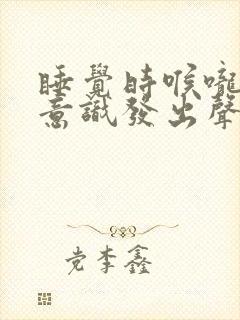 睡覺時喉嚨
意識發出聲
党李鑫